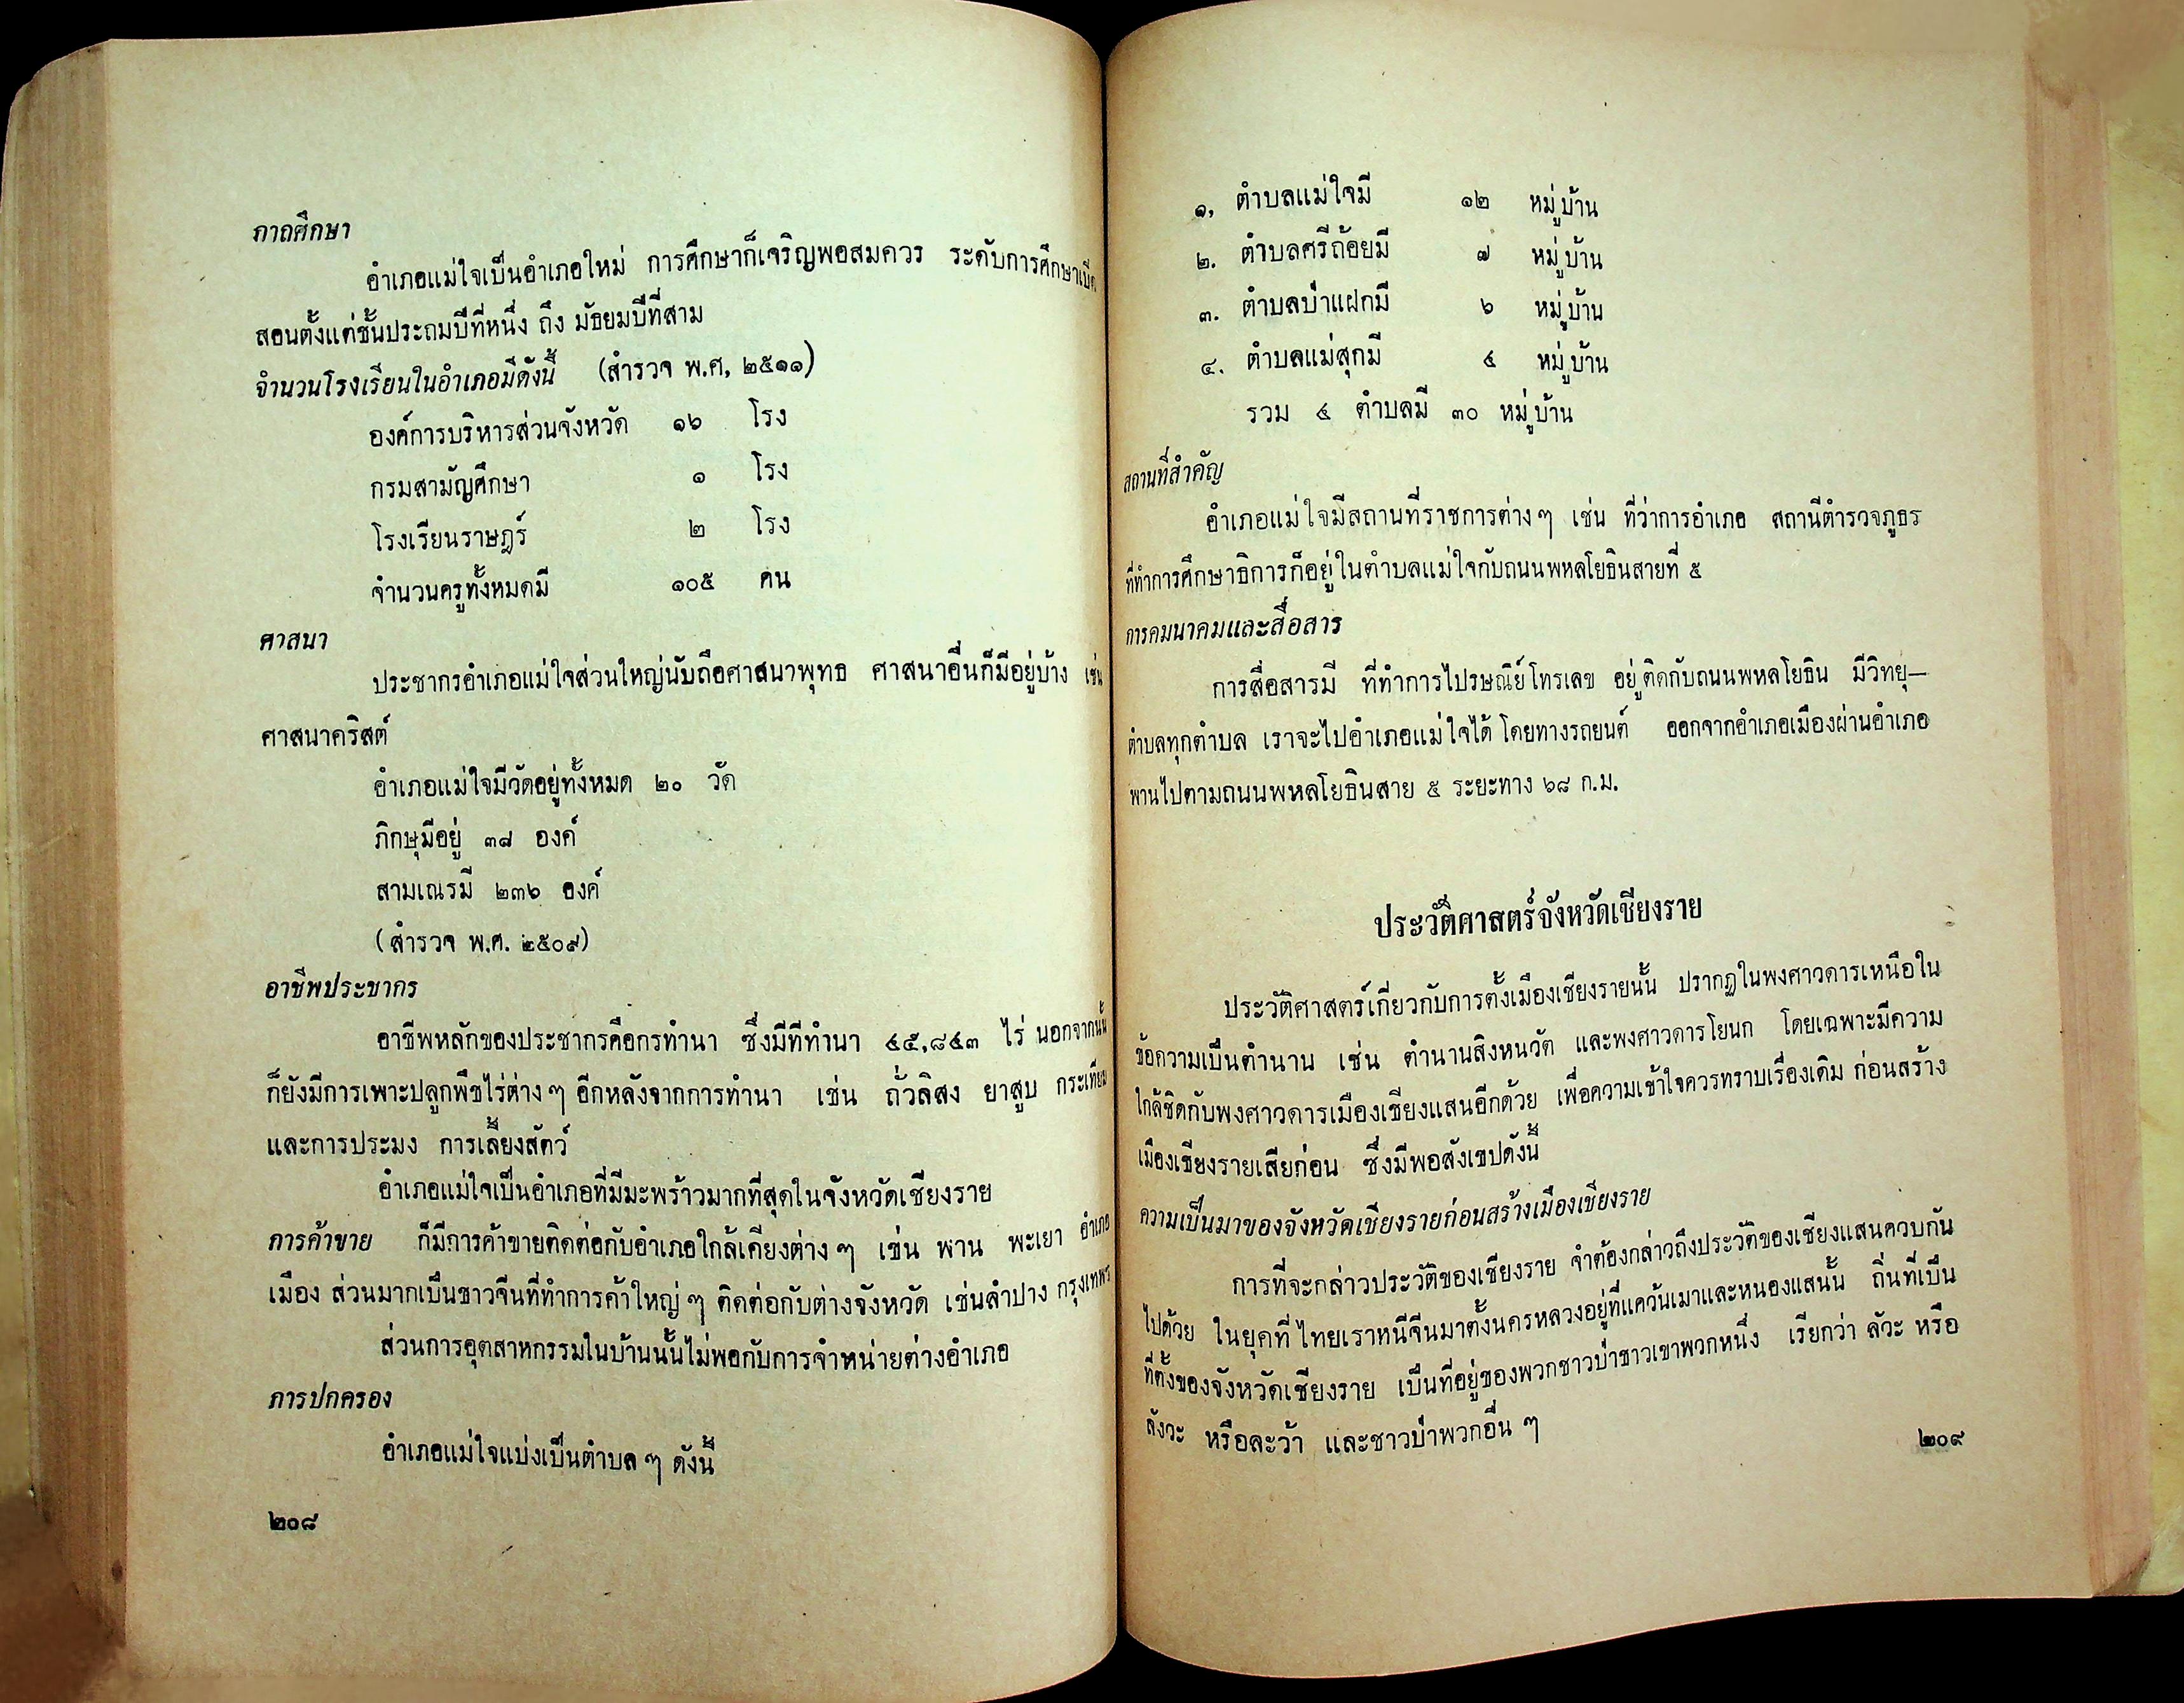 ภาถศึกษา
อำเภอแม่ใจเป็นอำเภอใหม่ การศึกษาก็เจริญพอสมควร ระดับการศึกษาเปิด
สอนตั้งแต่ชั้นประถมปีที่หนึ่ง ถึง มัธยมปีที่สาม
จำนวนโรงเรียนในอำเภอมีดังนี้ (สำรวจ พ.ศ, ๒๕๑๑)
องค์การบริหารส่วนจังหวัด ๑๖ โรง
กรมสามัญศึกษา ๑ โรง
โรงเรียนราษฎร์ ๒ โรง
จำนวนครูทั้งหมดมี ๑๐๕ คน
ศาสนา
ประชากรอำเภอแม่ใจส่วนใหญ่นับถือศาสนาพุทธ ศาสนาอื่นก็มีอยู่บ้าง เช่น
ศาสนาคริสต์
อำเภอแม่ใจมีวัดอยู่ทั้งหมด ๒๐ วัด
ภิกษุมีอยู่ ๓๘ องค์
สามเณรมี ๒๓๖ องค์
(สำรวจ พ.ศ. ๒๕๐๙)
อาชีพประชากร
อาชีพหลักของประชากรคือกรทำนา ซึ่งมีที่ทำนา ๔๕,๘๔๓ ไร่ นอกจากนั้น
ก็ยังมีการเพาะปลูกพืชไร่ต่าง ๆ อีกหลังจากการทำนา เช่น ถั่วลิสง ยาสูบ กระเทียม
และการประมง การเลี้ยงสัตว์
อำเภอแม่ใจเป็นอำเภอที่มีมะพร้าวมากที่สุดในจังหวัดเชียงราย
การค้าขาย ก็มีการค้าขายติดต่อกับอำเภอใกล้เคียงต่าง ๆ เช่น พาน พะเยา อำเภอ
เมือง ส่วนมากเป็นชาวจีนที่ทำการค้าใหญ่ ๆ ติดต่อกับต่างจังหวัด เช่นลำปาง กรุงเทพฯ
ส่วนการอุตสาหกรรมในบ้านนั้นไม่พอกับการจำหน่ายต่างอำเภอ
การปกครอง
อำเภอแม่ใจแบ่งเป็นตำบล ๆ ดังนี้
๒๐๘
๑, ตำบลแม่ใจมี ๑๒ หมู่บ้าน
๒. ตำบลศรีถ้อยมี ๗ หมู่บ้าน
๓. ตำบลป่าแฝกมี ๖ หมู่บ้าน
๔. ตำบลแม่สุกมี ๕ หมู่บ้าน
รวม ๔ ตำบลมี ๓๐ หมู่บ้าน
สถานที่สำคัญ
อำเภอแม่ใจมีสถานที่ราชการต่าง ๆ เช่น ที่ว่าการอำเภอ สถานีตำรวจภูธร
ที่ทำการศึกษาธิการก็อยู่ในตำบลแม่ใจกับถนนพหลโยธินสายที่ ๕
การคมนาคมและสื่อสาร
การสื่อสารมี ที่ทำการไปรษณีย์โทรเลข อยู่ติดกับถนนพหลโยธิน มีวิทยุ—
ตำบลทุกตำบล เราจะไปอำเภอแม่ใจได้ โดยทางรถยนต์ ออกจากอำเภอเมืองผ่านอำเภอ
พานไปตามถนนพหลโยธินสาย ๕ ระยะทาง ๖๘ ก.ม.
ประวัติศาสตร์จังหวัดเชียงราย
ประวัติศาสตร์เกี่ยวกับการตั้งเมืองเชียงรายนั้น ปรากฏในพงศาวดารเหนือใน
ข้อความเป็นตำนาน เช่น ตำนานสิงหนวัต และพงศาวดารโยนก โดยเฉพาะมีความ
ใกล้ชิดกับพงศาวดารเมืองเชียงแสนอีกด้วย เพื่อความเข้าใจควรทราบเรื่องเดิม ก่อนสร้าง
เมืองเชียงรายเสียก่อน ซึ่งมีพอสังเขปดังนี้
ความเป็นมาของจังหวัดเชียงรายก่อนสร้างเมืองเชียงราย
การที่จะกล่าวประวัติของเชียงราย จำต้องกล่าวถึงประวัติของเชียงแสนควบกัน
ไปด้วย ในยุคที่ไทยเราหนีจีนมาตั้งนครหลวงอยู่ที่แคว้นเมาและหนองแสนั้น ถิ่นที่เป็น
ที่ตั้งของจังหวัดเชียงราย เป็นที่อยู่ของพวกชาวป่าชาวเขาพวกหนึ่ง เรียกว่า ลัวะ หรือ
ลังวะ หรือละว้า และชาวป่าพวกอื่น ๆ
๒๐๙